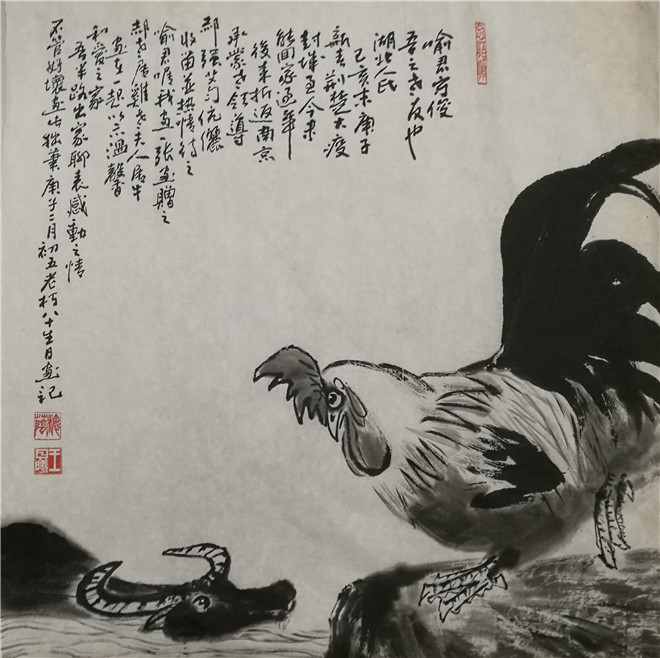 喻君守俊
吾之老友也
湖北人氏
己亥末庚子
新春荆楚大疫
封城至今未
能回家过年
後来折返南京
承蒙老领导
郝强芝伉儷
收留並热情待之
喻君嘱我画一张画贈之
郝老属雞老夫人属牛
画在一起以示温馨
和爱之家
吾半路出家聊表感動之情
不管好壞画出拙筆庚子二月初五老朽八十生日画記